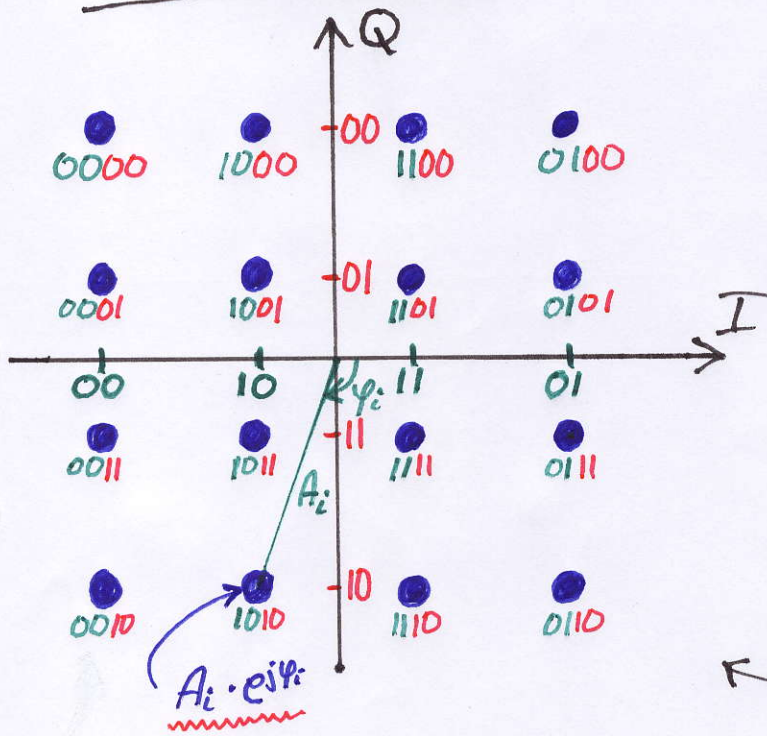 Q
00
0000 1000 1100 0100
01
0001 1001 1101 0101
I
00 10 11 01
φi
11
0011 1011 1111 0111
Ai
10
0010 1010 1110 0110
Ai · e^jφi